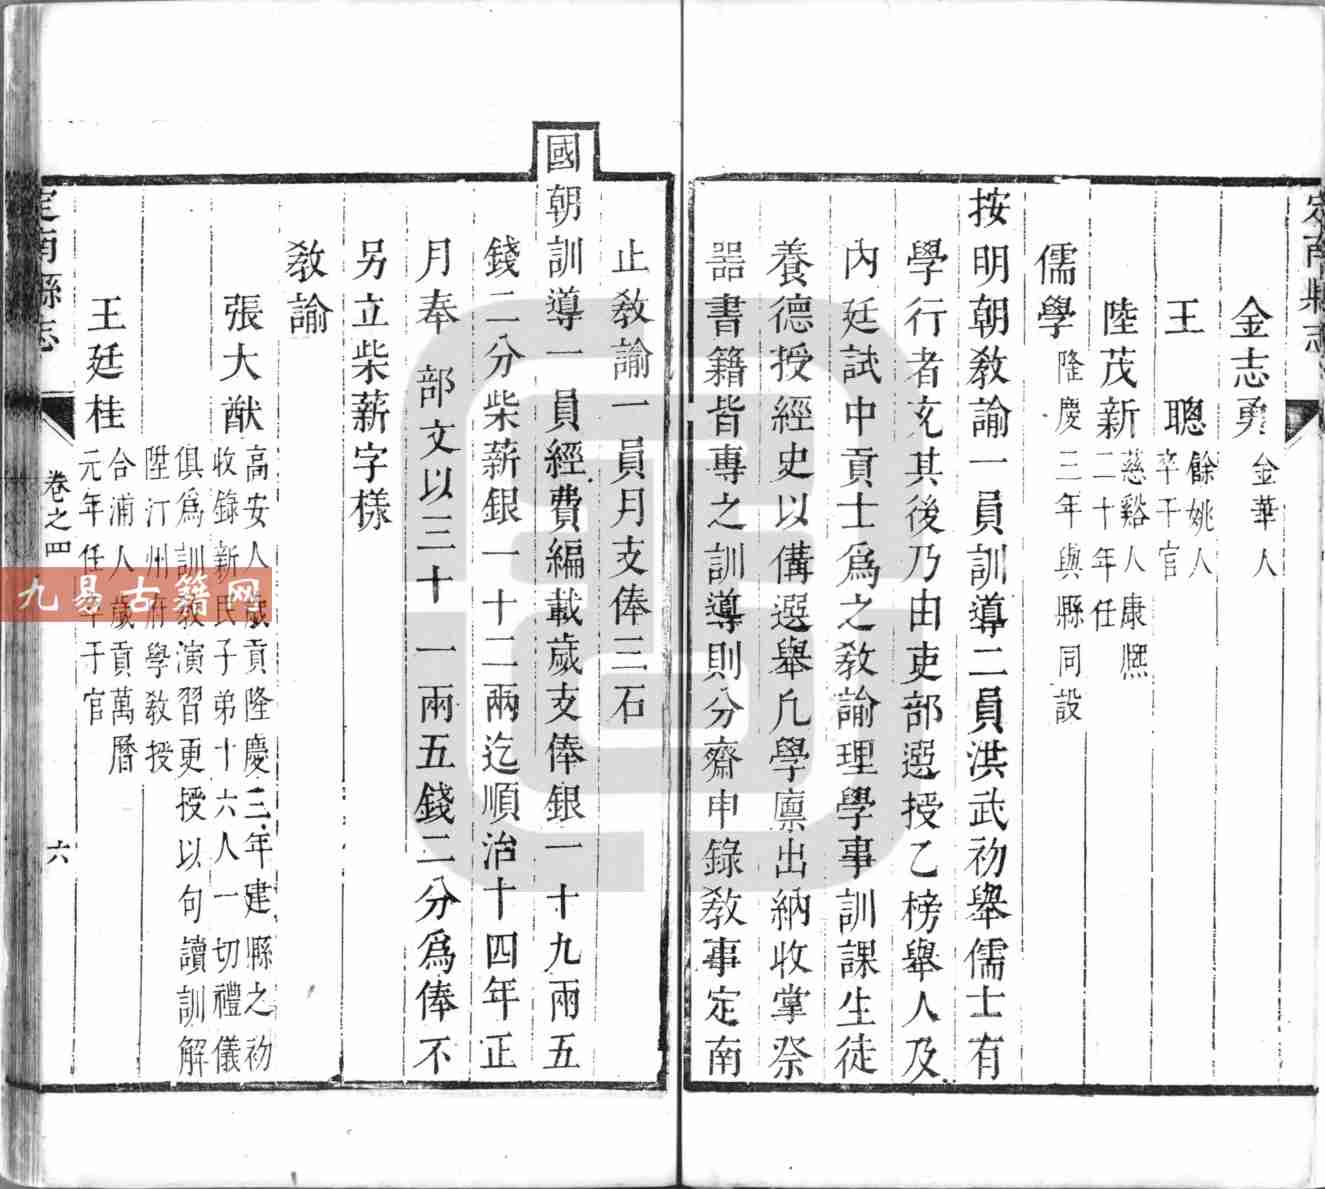 定南縣志
金志勇 金華人
王 聰 餘姚人
卒于官
陸茂新 慈谿人康熈
二十年任
儒學 隆慶三年與縣同設
按明朝敎諭一員訓導二員洪武初舉儒士有
學行者充其後乃由吏部選授乙榜舉人及
內廷試中貢士爲之敎諭理學事訓課生徒
養德授經史以備選舉凡學廩出納收掌祭
器書籍皆專之訓導則分齋申錄敎事定南
止敎諭一員月支俸三石
國朝訓導一員經費編載歲支俸銀一十九兩五
錢二分柴薪銀一十二兩迄順治十四年正
月奉 部文以三十一兩五錢二分爲俸不
另立柴薪字樣
敎諭
張大猷 高安人歲貢隆慶三年建縣之初
收錄新民子弟十六人一切禮儀
俱爲訓敎演習更授以句讀訓解
陞汀州府學敎授
王廷桂 合浦人歲貢萬曆
元年任卒于官
定南縣志
卷之四
六
九易古籍网